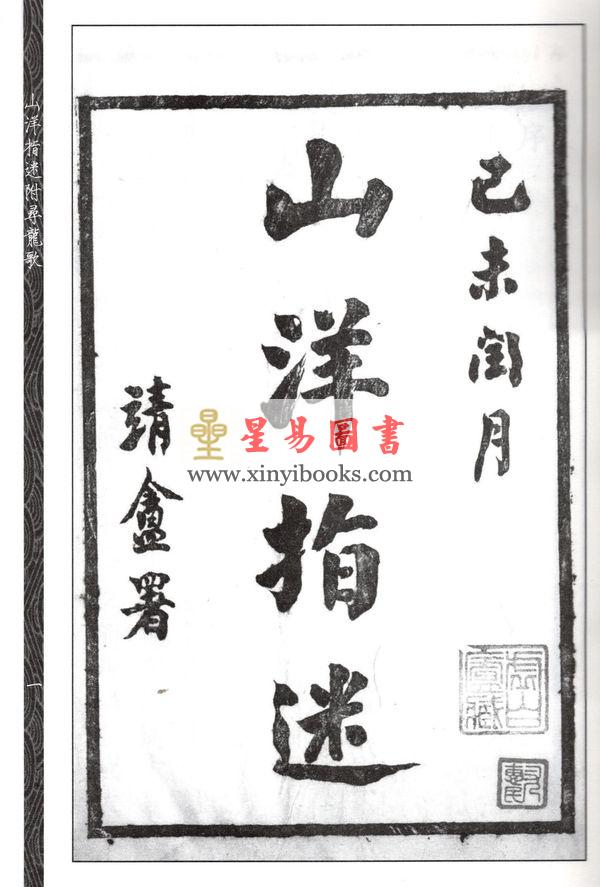 己未閏月
山洋指迷
靖盦署
星易圖書
www.xinyibooks.com
山洋指迷附尋龍歌
一